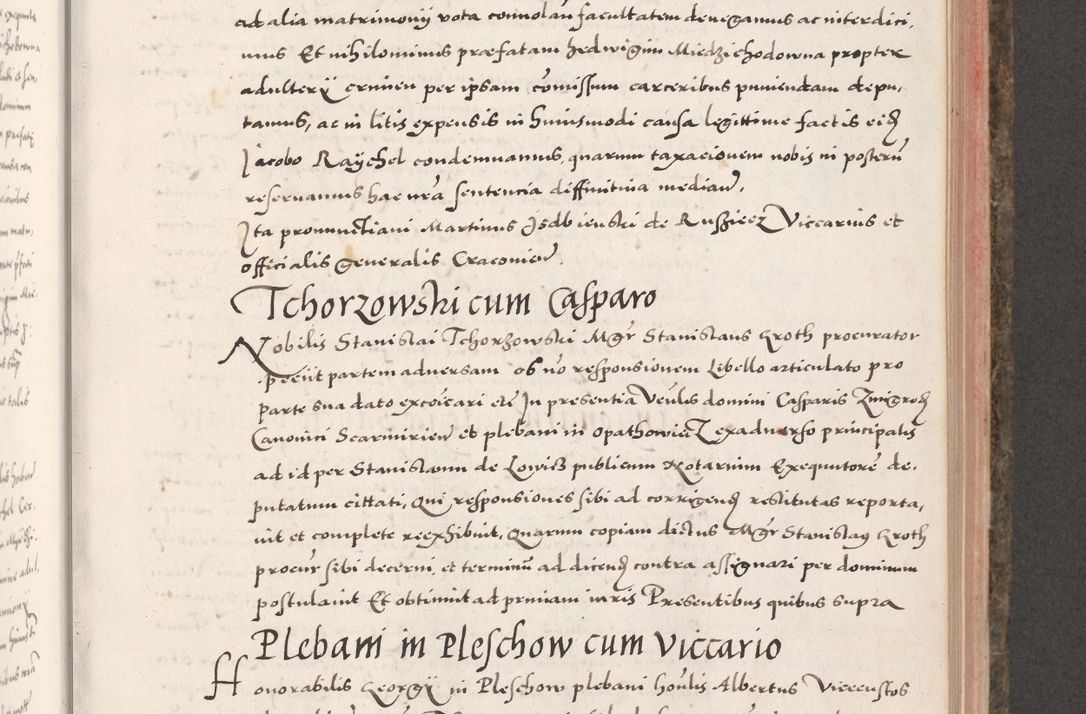 ad alia matrimonÿ vota connolan facultatem denegamus ac interdici,
mus Et nihilominus præfatam hedwigim Miedzichodowna propter
adulterÿ crimen per ipsam cōmissum carceribus puniendam depu,
tamus, ac in litis expensis in huiusmodi causa legittime factis eid
Jacobo Raÿchel condemnamus, quarum taxacionem nobis in posterū
reservamus hac nrā sentencia diffinitiva median.
Ita pronunctiavi Martinus Isdbienski de Rusziecz Viccarius et
officialis generalis Cracovien.
Tchorzowski cum Casparo
Nobilis Stanislai Tchorzowski Mgr Stanislaus Kroth procurator
petiit partem adversam ob nō responsionem Libello articulato pro
parte sua dato excōicari etc̄ In presentia Venlis domini Casparis Zmigrod
Canonici Scarmirien et plebani in Opathowiecz ex adverso principalis
ad id per Stanislaum de Lowicz publicum Notarium Exequutorē de,
putatum cittati, Qui responsiones sibi ad corrigend restitutas reporta,
vit et complete reexhibuit, Quarum copiam dictus Mgr Stanislaus Kroth
procur sibi decerni, et terminū ad dicend contra assignari per dominum
postulavit Et obtinuit ad primam iuris Presentibus quibus supra
Plebani in Pleschow cum Viccario
Honorabilis Georgÿ in Pleschow plebani honlis Albertus Vicecustos